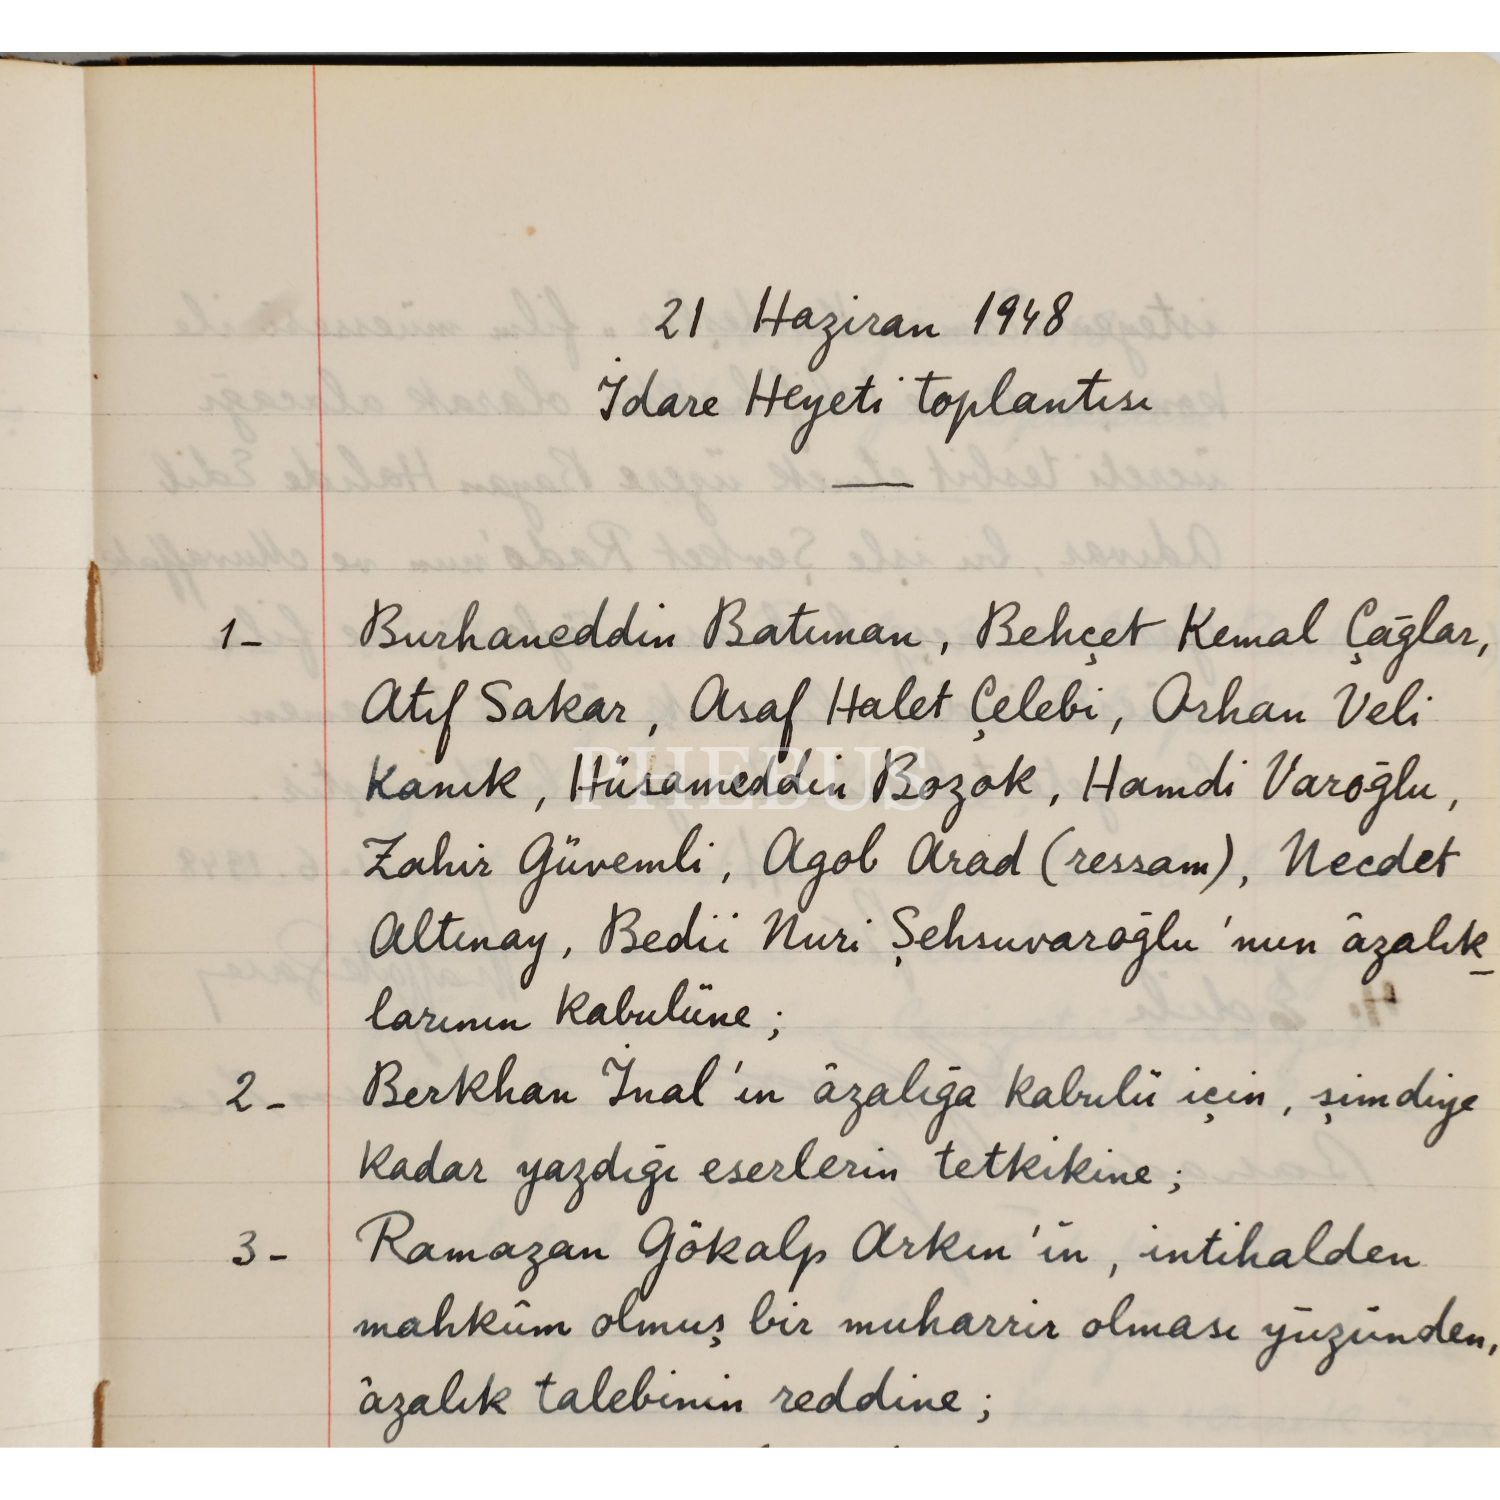 21 Haziran 1948
İdare Heyeti toplantısı
1- Burhaneddin Batıman, Behçet Kemal Çağlar,
Atıf Sakar, Asaf Halet Çelebi, Orhan Veli
Kanık, Hüsameddin Bozok, Hamdi Varoğlu,
Zahir Güvemli, Agob Arad (ressam), Necdet
Altınay, Bedii Nuri Şehsuvaroğlu'nun âzalık_
larının kabulüne;
2- Berkhan İnal'ın âzalığa kabulü için, şimdiye
kadar yazdığı eserlerin tetkikine;
3- Ramazan Gökalp Arkın'ın, intihalden
mahkûm olmuş bir muharrir olması yüzünden,
âzalık talebinin reddine;
PHEBUS